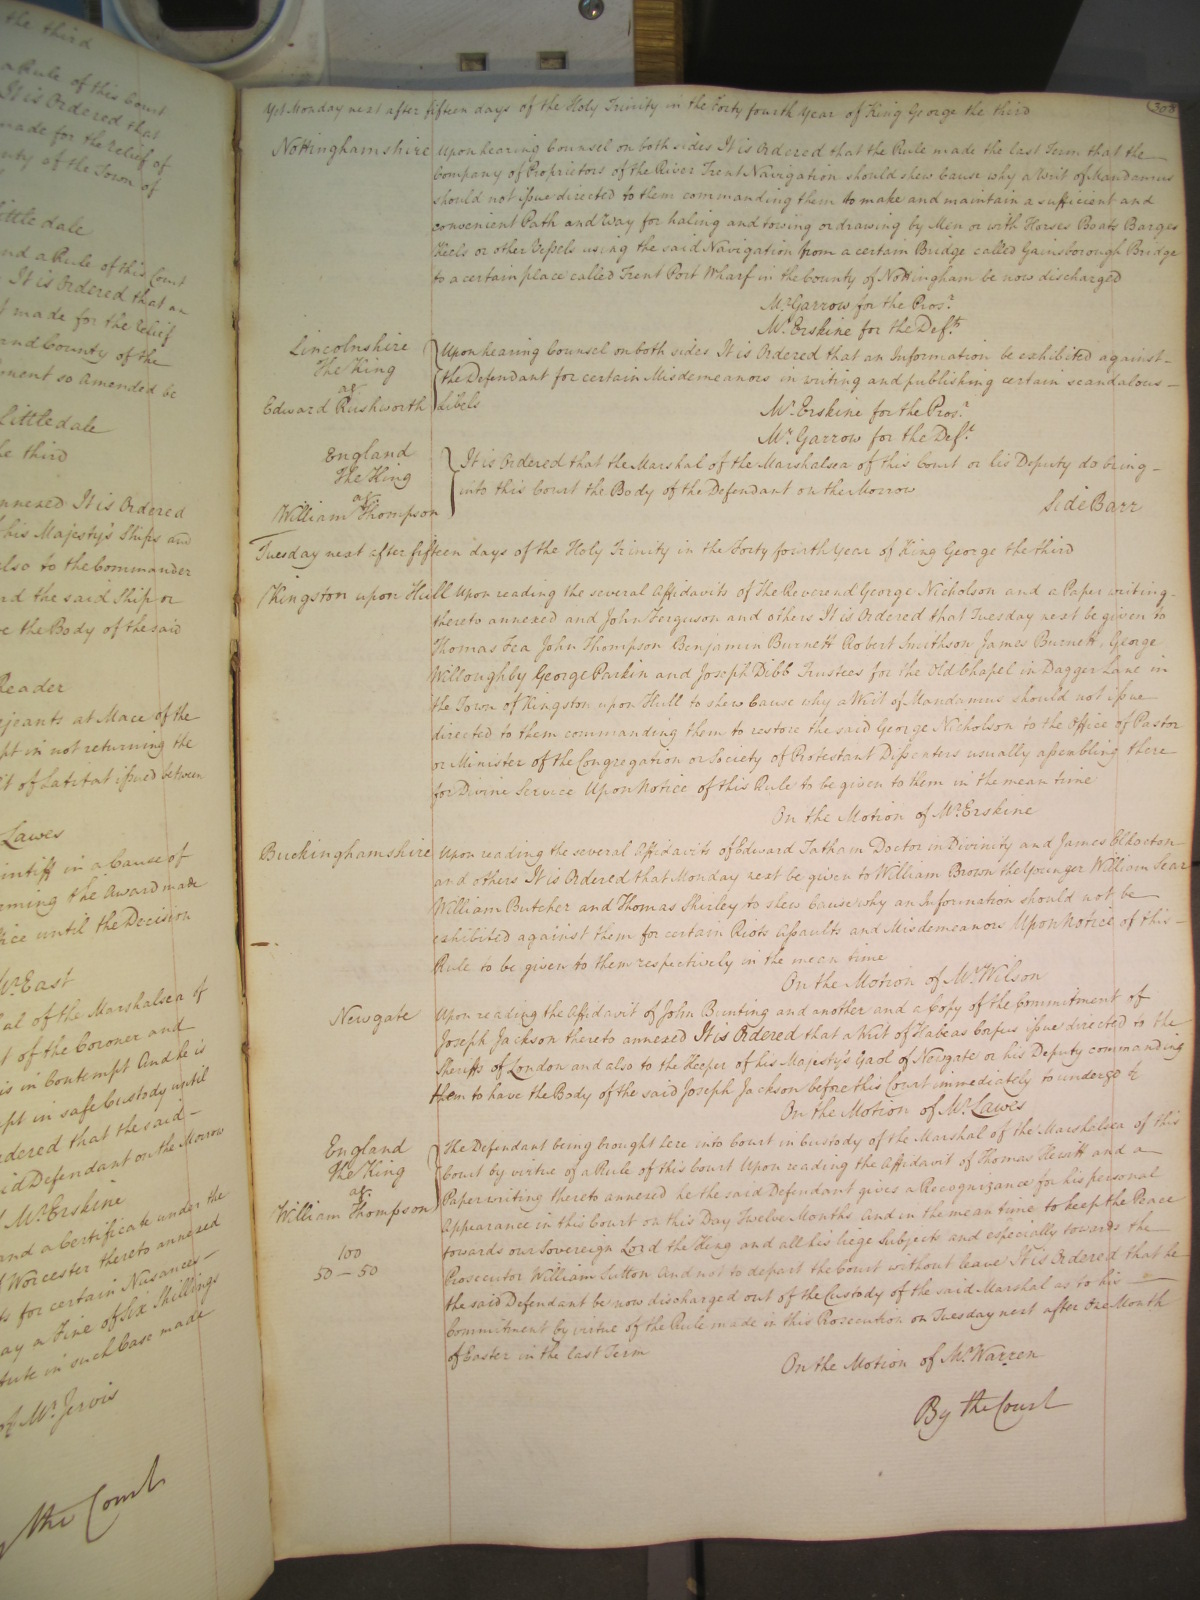 the third
a Rule of this Court
It is Ordered that
made for the relief of
nty of the Town of
ittledale
nd a Rule of this Court
It is Ordered that an
t made for the relief
and County of the
onent so Amended be
Littledale
he third
nnexed It is Ordered
his Majesty's Ships and
also to the Commander
nd the said Ship or
e the Body of the said
Reader
rjeants at Mace of the
pt in not returning the
it of Latitat issued between
Lawes
intiff in a Cause of
rming the Award made
ice until the Decision
Mr. East
al of the Marshalsea of
t of the Coroner and
is in Contempt And he is
pt in safe Custody until
rdered that the said
id Defendant on the Morrow
Mr. Erskine
and a Certificate under the
Worcester thereto annexed
ts for certain Nusances
ay a Fine of Six Shillings
tute in such Case made
of Mr. Jervis
the Court
308
Yet Monday next after fifteen days of the Holy Trinity in the Forty fourth Year of King George the third
Nottinghamshire Upon hearing Counsel on both sides It is Ordered that the Rule made the last Term that the
Company of Proprietors of the River Trent Navigation should shew Cause why a Writ of Mandamus
should not issue directed to them commanding them to make and maintain a sufficient and
convenient Path and Way for haling and towing or drawing by Men or with Horses Boats Barges
Keels or other Vessels using the said Navigation from a certain Bridge called Gainsborough Bridge
to a certain place called Trent Port Wharf in the County of Nottingham be now discharged
Mr. Garrow for the Prosr.
Mr. Erskine for the Defts.
Lincolnshire
The King
agt
Edward Rushworth
Upon hearing Counsel on both sides It is Ordered that an Information be exhibited against
the Defendant for certain Misdemeanors in writing and publishing certain scandalous
Libels
Mr. Erskine for the Prosr.
Mr. Garrow for the Deft.
England
The King
agt
William Thompson
It is Ordered that the Marshal of the Marshalsea of this Court or his Deputy do bring
into this Court the Body of the Defendant on the Morrow
Side Barr
Tuesday next after fifteen days of the Holy Trinity in the Forty fourth Year of King George the third
Kingston upon Hull Upon reading the several Affidavits of The Reverend George Nicholson and a Paper writing
thereto annexed and John Ferguson and others It is Ordered that Tuesday next be given to
Thomas Fea John Thompson Benjamin Burnett Robert Smithson James Burnett, George
Willoughby George Parkin and Joseph Dibb Trustees for the Old Chapel in Dagger Lane in
the Town of Kingston upon Hull to shew Cause why a Writ of Mandamus should not issue
directed to them commanding them to restore the said George Nicholson to the Office of Pastor
or Minister of the Congregation or Society of Protestant Dissenters usually assembling there
for Divine Service Upon Notice of this Rule to be given to them in the mean time
On the Motion of Mr. Erskine
Buckinghamshire Upon reading the several Affidavits of Edward Tatham Doctor in Divinity and James
and others It is Ordered that Monday next be given to William Brown the Younger William Sear
William Butcher and Thomas Shirley to shew Cause why an Information should not be
exhibited against them for certain Riots Assaults and Misdemeanors Upon Notice of this
Rule to be given to them respectively in the mean time
On the Motion of Mr. Wilson
Newgate Upon reading the Affidavit of John Bunting and another and a Copy of the Commitment of
Joseph Jackson thereto annexed It is Ordered that a Writ of Habeas Corpus issue directed to the
Sheriffs of London and also to the Keeper of his Majesty's Gaol of Newgate or his Deputy commanding
them to have the Body of the said Joseph Jackson before this Court immediately to undergo &c
On the Motion of Mr. Lawes
England
The King
agt
William Thompson
100
50 – 50
The Defendant being brought here into Court in Custody of the Marshal of the Marshalsea of this
Court by virtue of a Rule of this Court Upon reading the Affidavit of Thomas Hewitt and a
Paper writing thereto annexed he the said Defendant gives a Recognizance for his personal
Appearance in this Court on this Day Twelve Months And in the mean time to keep the Peace
towards our Sovereign Lord the King and all his liege Subjects and especially towards the
Prosecutor William Sutton And not to depart the Court without leave It is Ordered that he
the said Defendant be now discharged out of the Custody of the said Marshal as to his
Commitment by virtue of the Rule made in this Prosecution on Tuesday next after One Month
of Easter in the last Term
On the Motion of Mr. Warren
By the Court